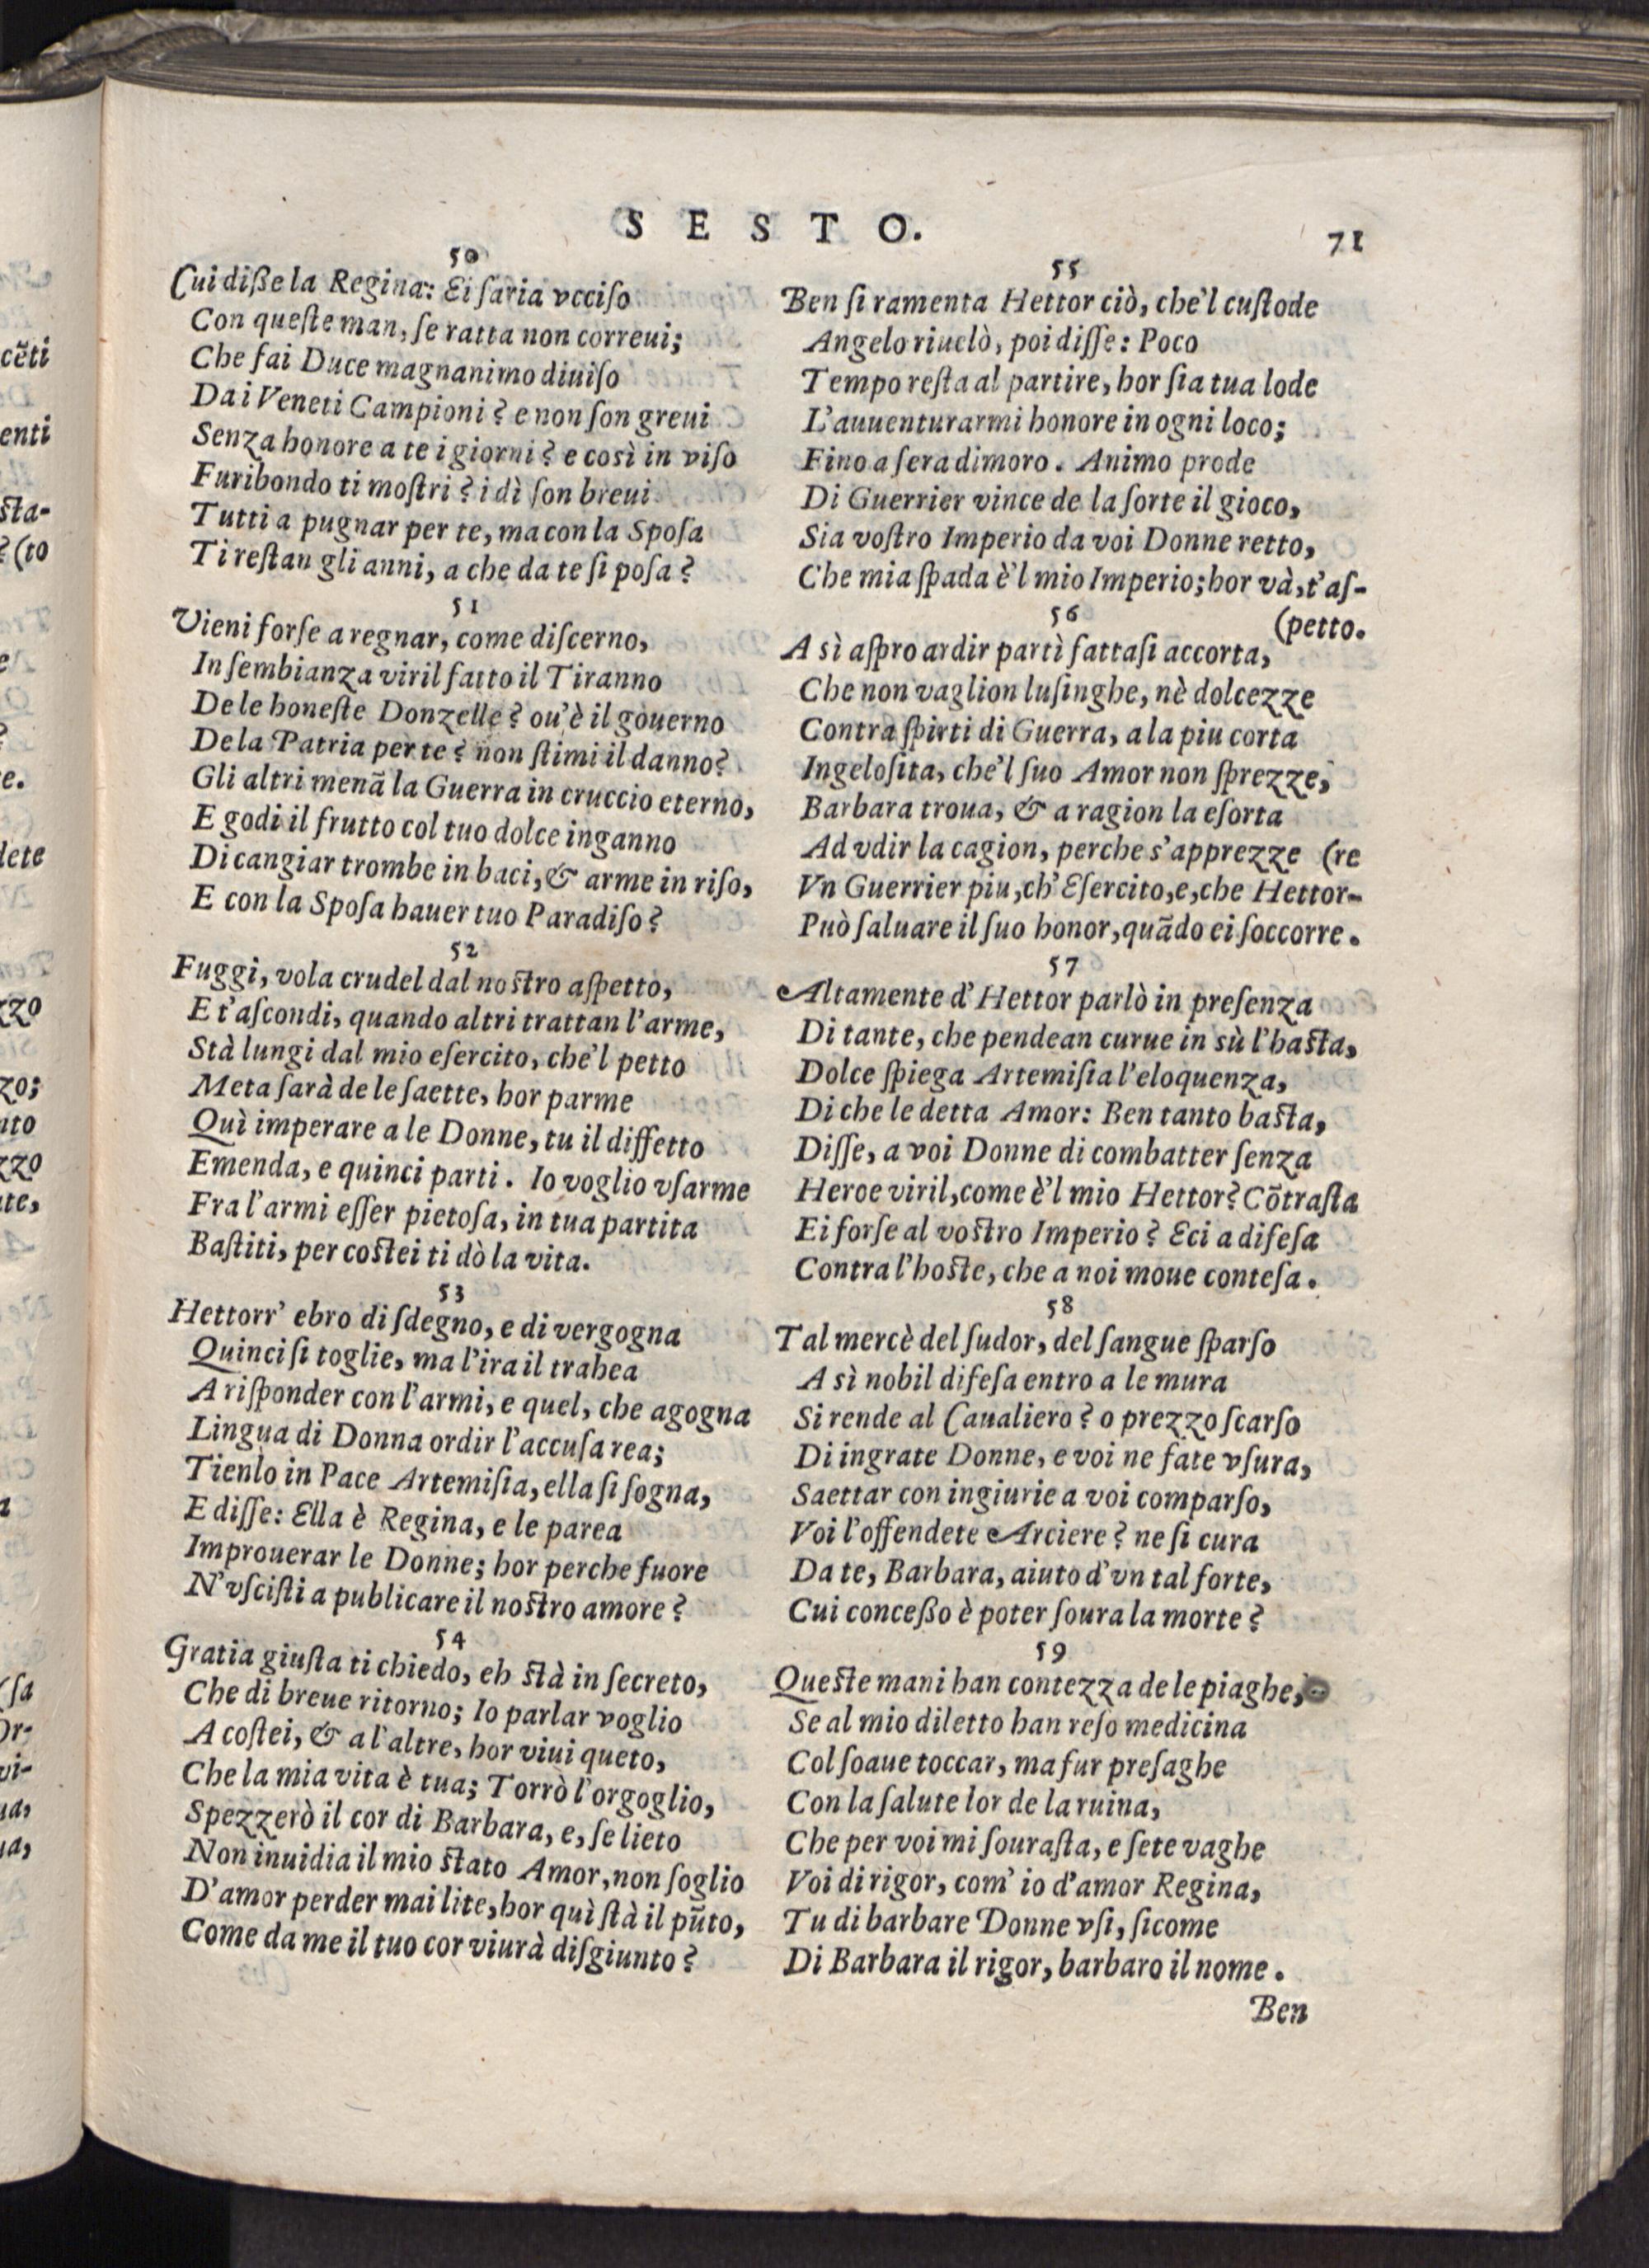 SESTO.
71
50
Cui diße la Regina: Ei ſaria vcciſo
Con queſte man, ſe ratta non correui;
Che fai Duce magnanimo diuiſo
Da i Veneti Campioni? e non ſon greui
Senza honore a te i giorni? e così in viſo
Furibondo ti moſtri? i dì ſon breui
Tutti a pugnar per te, ma con la Spoſa
Ti reſtan gli anni, a che da te ſi poſa?
51
Vieni forſe a regnar, come diſcerno,
In ſembianza viril fatto il Tiranno
De le honeſte Donzelle? ou'è il gouerno
De la Patria per te? non ſtimi il danno?
Gli altri menā la Guerra in cruccio eterno,
E godi il frutto col tuo dolce inganno
Di cangiar trombe in baci, & arme in riſo,
E con la Spoſa hauer tuo Paradiſo?
52
Fuggi, vola crudel dal noſtro aſpetto,
E t'aſcondi, quando altri trattan l'arme,
Stà lungi dal mio eſercito, che'l petto
Meta ſarà de le ſaette, hor parme
Quì imperare a le Donne, tu il diffetto
Emenda, e quinci parti. Io voglio vſarme
Fra l'armi eſſer pietoſa, in tua partita
Baſtiti, per coſtei ti dò la vita.
53
Hettorr' ebro di ſdegno, e di vergogna
Quinci ſi toglie, ma l'ira il trahea
A riſponder con l'armi, e quel, che agogna
Lingua di Donna ordir l'accuſa rea;
Tienlo in Pace Artemiſia, ella ſi ſogna,
E diſſe: Ella è Regina, e le parea
Improuerar le Donne; hor perche fuore
N'vſciſti a publicare il noſtro amore?
54
Gratia giuſta ti chiedo, eh ſtà in ſecreto,
Che di breue ritorno; Io parlar voglio
A coſtei, & a l'altre, hor viui queto,
Che la mia vita è tua; Torrò l'orgoglio,
Spezzerò il cor di Barbara, e, ſe lieto
Non inuidia il mio ſtato Amor, non ſoglio
D'amor perder mai lite, hor quì ſtà il pūto,
Come da me il tuo cor viurà diſgiunto?
55
Ben ſi ramenta Hettor ciò, che'l cuſtode
Angelo riuelò, poi diſſe: Poco
Tempo reſta al partire, hor ſia tua lode
L'auuenturarmi honore in ogni loco;
Fino a ſera dimoro. Animo prode
Di Guerrier vince de la ſorte il gioco,
Sia voſtro Imperio da voi Donne retto,
Che mia ſpada è'l mio Imperio; hor và, t'aſ-
(petto.
56
A sì aſpro ardir partì fattaſi accorta,
Che non vaglion luſinghe, nè dolcezze
Contra ſpirti di Guerra, a la piu corta
Ingeloſita, che'l ſuo Amor non ſprezze,
Barbara troua, & a ragion la eſorta
Ad vdir la cagion, perche s'apprezze (re
Vn Guerrier piu, ch'Eſercito, e, che Hettor-
Può ſaluare il ſuo honor, quādo ei ſoccorre.
57
Altamente d'Hettor parlò in preſenza
Di tante, che pendean curue in sù l'haſta,
Dolce ſpiega Artemiſia l'eloquenza,
Di che le detta Amor: Ben tanto baſta,
Diſſe, a voi Donne di combatter ſenza
Heroe viril, come è'l mio Hettor? Cōtraſta
Ei forſe al voſtro Imperio? Eci a difeſa
Contra l'hoſte, che a noi moue conteſa.
58
Tal mercè del ſudor, del ſangue ſparſo
A sì nobil difeſa entro a le mura
Si rende al Caualiero? o prezzo ſcarſo
Di ingrate Donne, e voi ne fate vſura,
Saettar con ingiurie a voi comparſo,
Voi l'offendete Arciere? ne ſi cura
Da te, Barbara, aiuto d'vn tal forte,
Cui conceßo è poter ſoura la morte?
59
Queſte mani han contezza de le piaghe,
Se al mio diletto han reſo medicina
Col ſoaue toccar, ma fur preſaghe
Con la ſalute lor de la ruina,
Che per voi mi souraſta, e ſete vaghe
Voi di rigor, com' io d'amor Regina,
Tu di barbare Donne vſi, ſicome
Di Barbara il rigor, barbaro il nome.
Ben